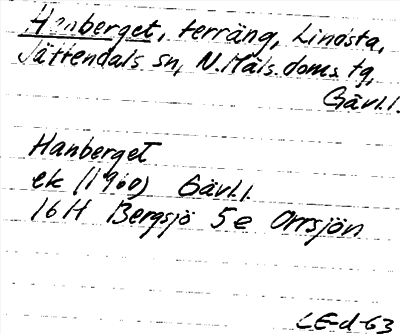 Hanberget, terräng, Lindsta,
Jättendals sn, N.Häls. doms. tg,
Gävl.l.
Hanberget
ek (1960) Gävl.l.
16H Bergsjö 5e Orrsjön